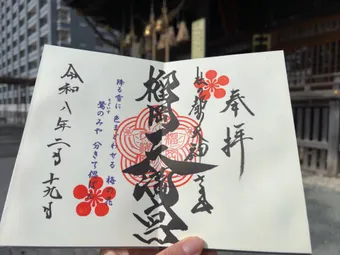 奉拝
榴岡天満宮
降る雪に 色まどはせる 梅の花
鶯のみや 分きて偲
令和八年二月十九日